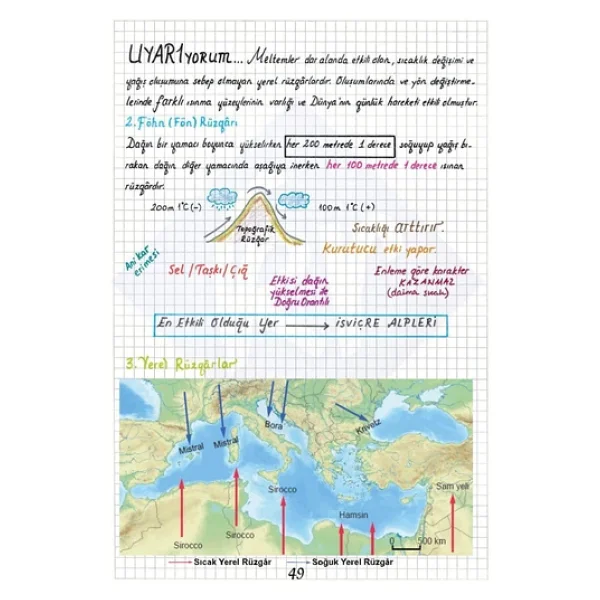 UYARIyorum... Meltemler dar alanda etkili olan, sıcaklık değişimi ve
yağış oluşumuna sebep olmayan yerel rüzgârlardır. Oluşumlarında ve yön değiştirme-
lerinde farklı ısınma yüzeylerinin varlığı ve Dünya'nın günlük hareketi etkili olmuştur.
2. Föhn (Fön) Rüzgârı
Dağın bir yamacı boyunca yükselirken her 200 metrede 1 derece soğuyup yağış bı-
rakan dağın diğer yamacında aşağıya inerken her 100 metrede 1 derece ısınan
rüzgârdır.
200m 1°C (-)
100m 1°C (+)
Topografik
Rüzgar
Sıcaklığı arttırır.
Kurutucu etki yapar.
Ani kar
erimesi
Sel / Taşkı / Çığ
Etkisi dağın
yükselmesi ile
Doğru Orantılı
Enleme göre karakter
KAZANMAZ
(daima sıcak)
En Etkili Olduğu Yer → İSVİÇRE ALPLERİ
3. Yerel Rüzgârlar
Mistral
Mistral
Bora
Krivetz
Sirocco
Sirocco
Sirocco
Hamsin
Sam yeli
0 500 km
Sıcak Yerel Rüzgâr
Soğuk Yerel Rüzgâr
49